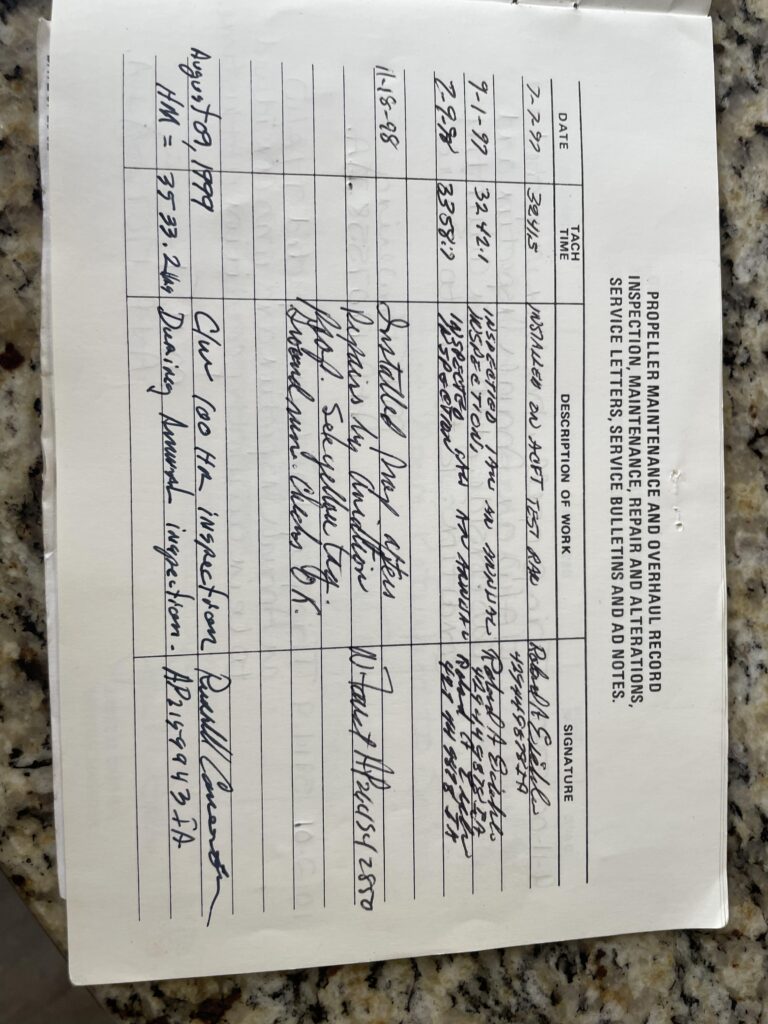 PROPELLER MAINTENANCE AND OVERHAUL RECORD
INSPECTION, MAINTENANCE, REPAIR AND ALTERATIONS,
SERVICE LETTERS, SERVICE BULLETINS AND AD NOTES.
DATE TACH TIME DESCRIPTION OF WORK SIGNATURE
7-7-97 3241.5 INSTALLED ON ACFT TEST RAN Robert A
9-1-97 3242.1 INSPECTED IAW AN ANNUAL Robert A
INSPECTION.
7-9-98 3358.7 INSPECTED IAW AN ANNUAL Robert A
INSPECTION
11-18-98 Installed Prop after
Repairs by
Prop. See yellow tag. AP
Ground run. Checks OK.
August 09, 1999 C/W 100 HR inspection Russell
HM = 3533.2 Hrs During Annual inspection. AP2159943 IA